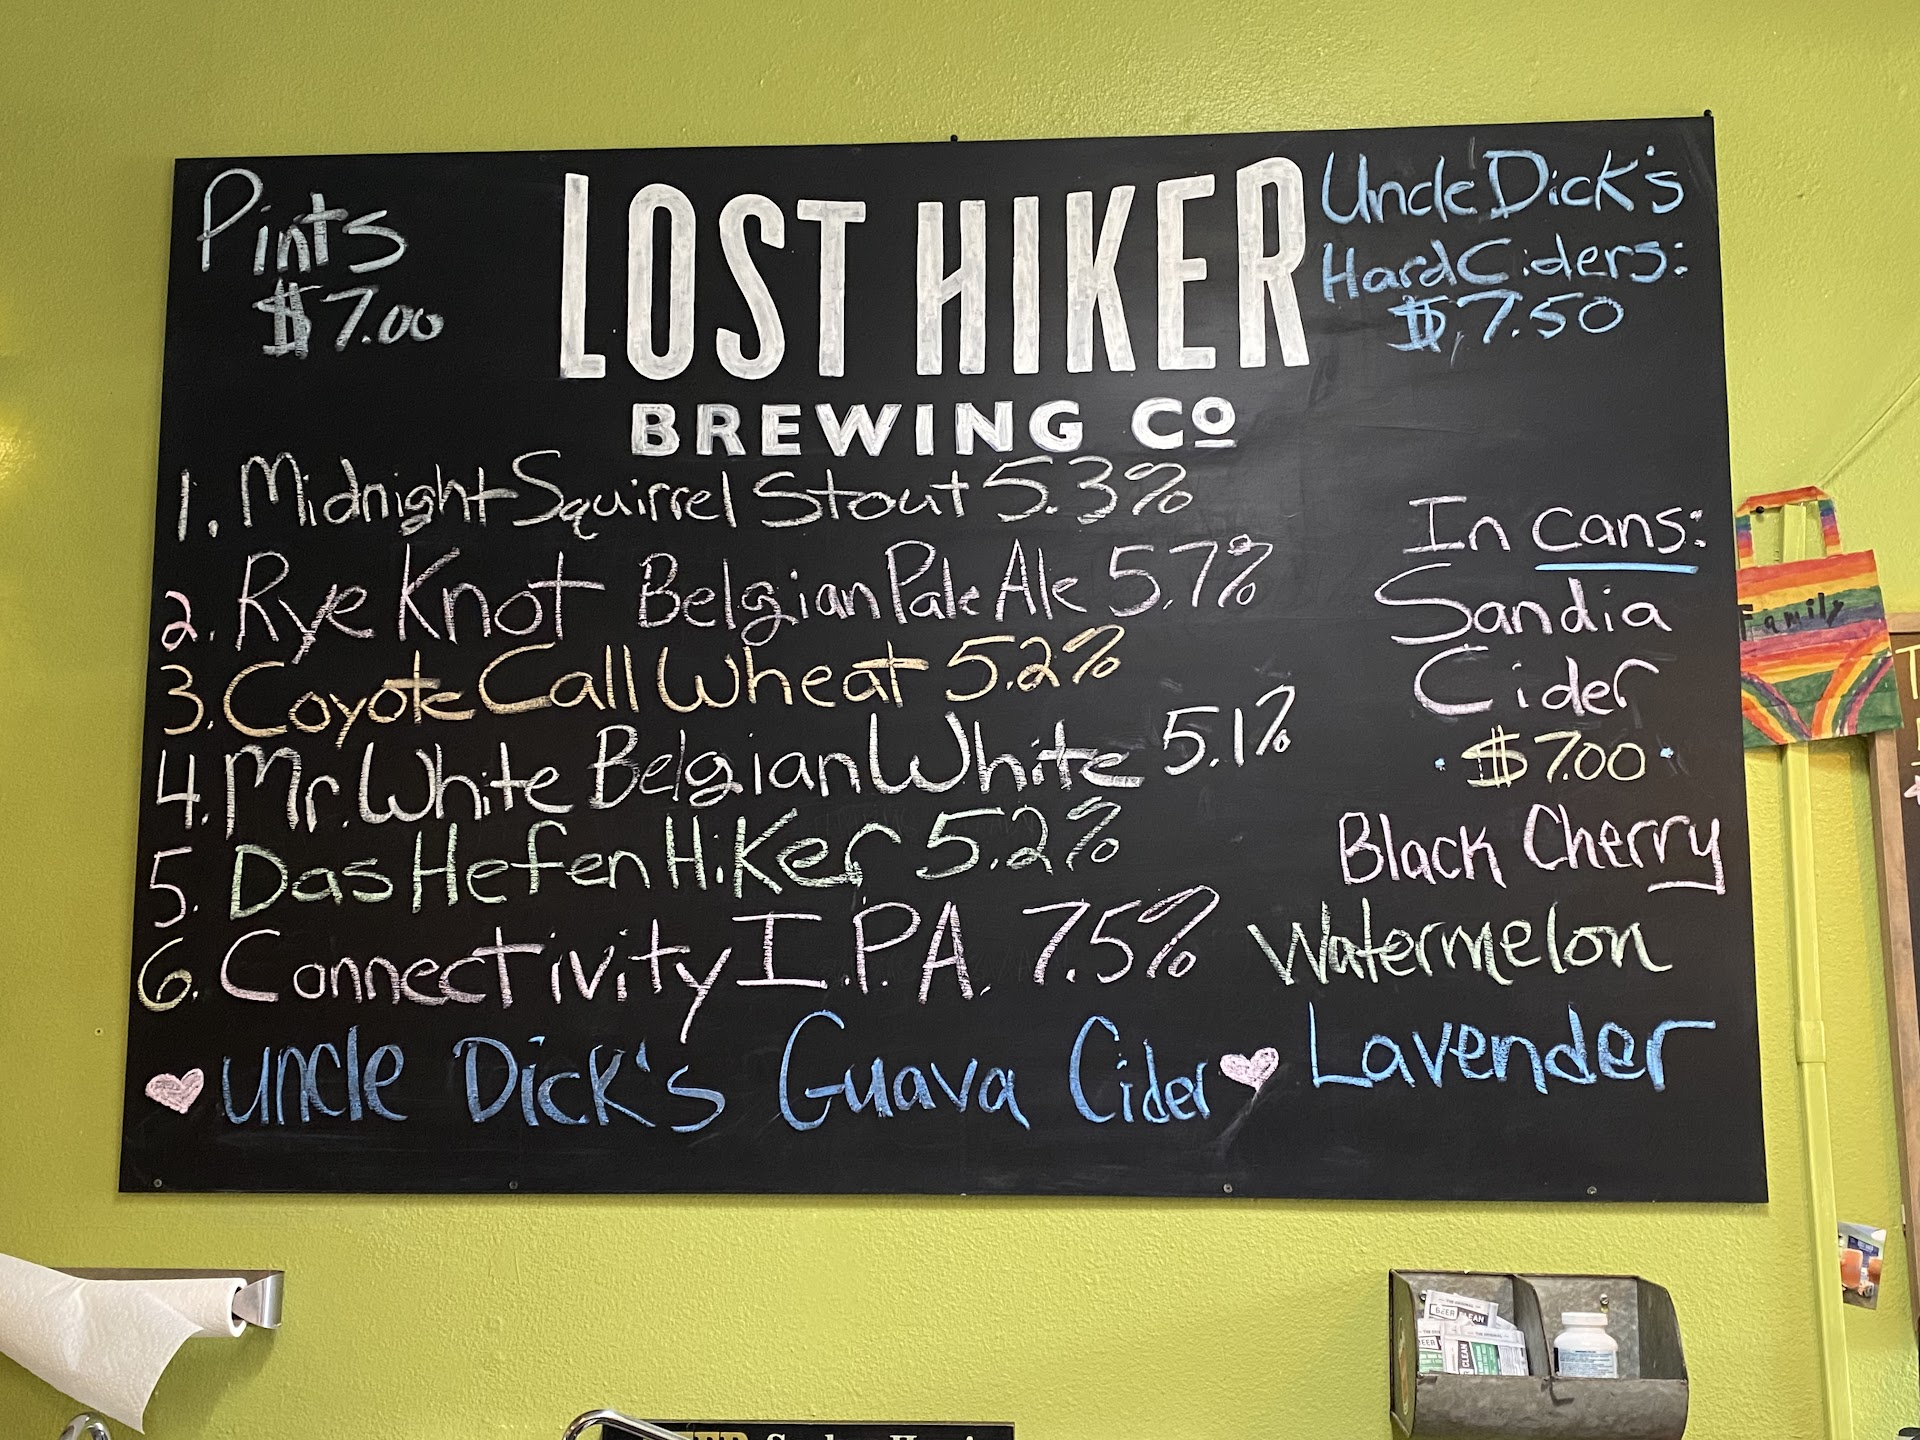 Pints
$7.00
LOST HIKER
BREWING Co
Uncle Dick's
Hard Ciders:
$7.50
1. Midnight Squirrel Stout 5.3%
2. Rye Knot Belgian Pale Ale 5.7%
3. Coyote Call Wheat 5.2%
4. Mr. White Belgian White 5.1%
5. Das Hefen Hiker 5.2%
6. Connectivity I.P.A. 7.5%
Uncle Dick's Guava Cider
In cans:
Sandia
Cider
$7.00
Black Cherry
Watermelon
Lavender
Family
BEER CLEAN